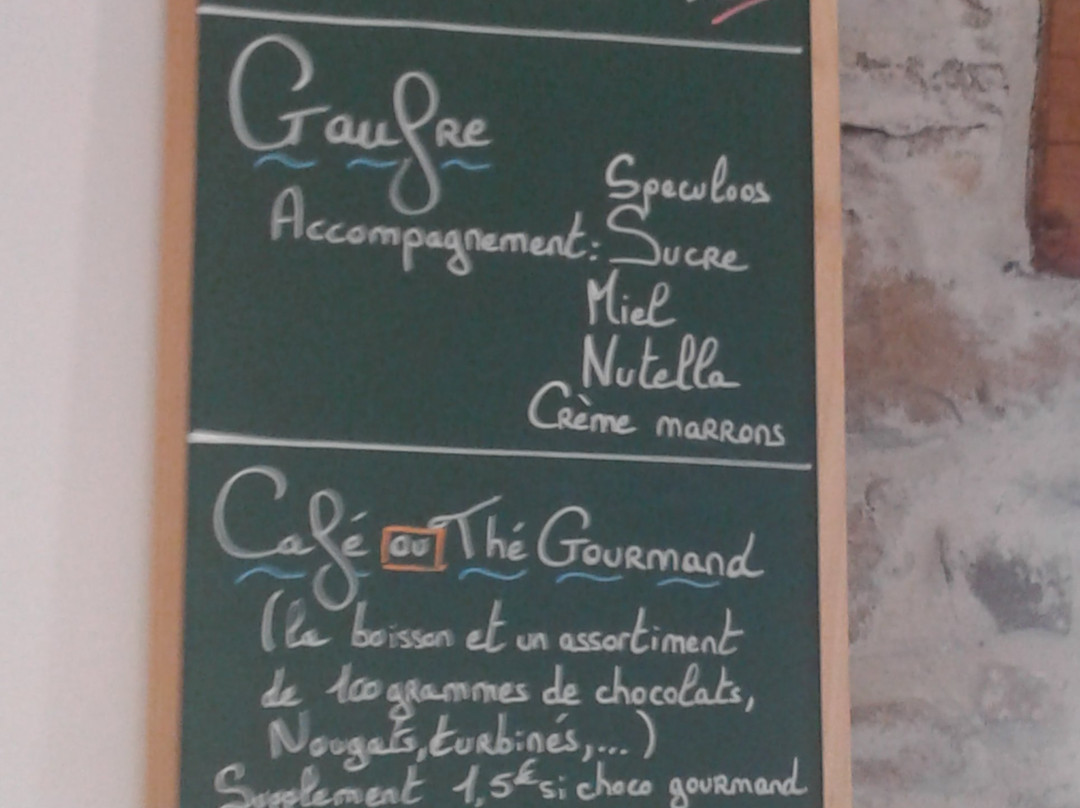 Gaufre
Speculoos
Accompagnement: Sucre
Miel
Nutella
Crème marrons
Café ou Thé Gourmand
(la boisson et un assortiment
de 100 grammes de chocolats,
Nougats, turbinés,...)
Supplement 1,5€ si choco gourmand